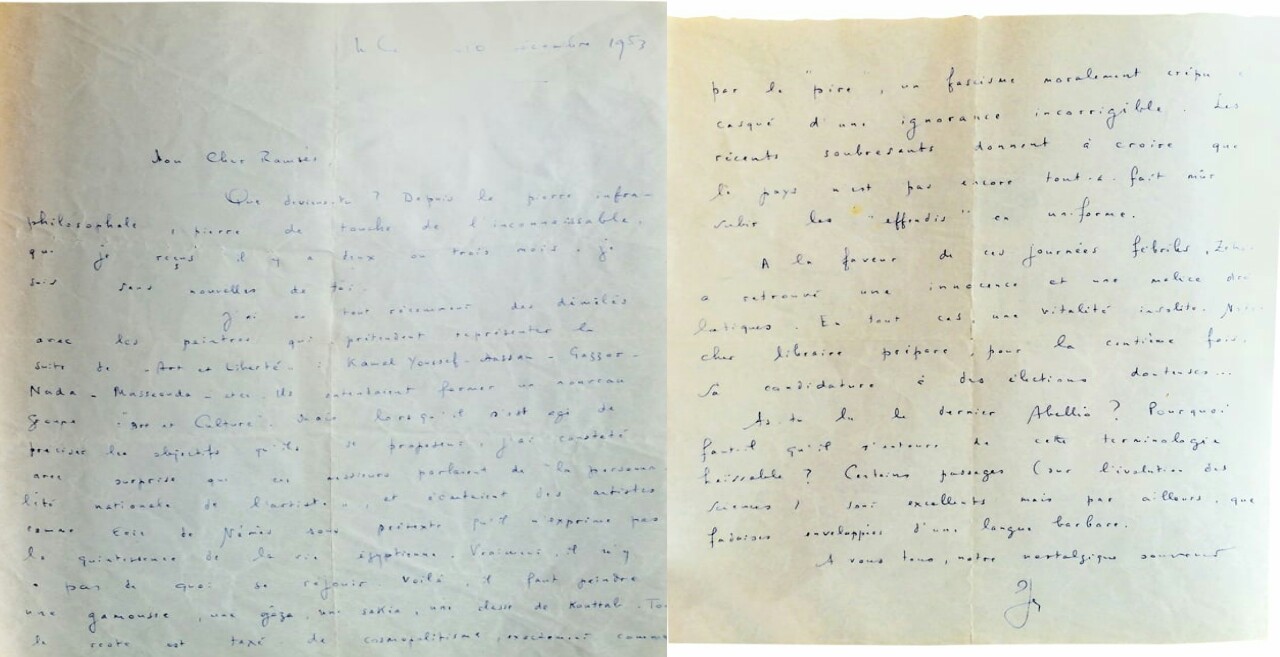 décembre 1953
Mon Cher Ramsès,
Que deviens-tu ? Depuis la pierre infra-
philosophale, pierre de touche de l'inconnaissable,
que je reçus il y a deux ou trois mois, je
suis sans nouvelles de toi.
J'ai eu tout récemment des démêlés
avec les peintres qui prétendent représenter la
suite de "Art et Liberté" : Kamel Youssef - Hassan - Gazzar -
Nada - Massouda - etc. Ils entendaient former un nouveau
groupe "Art et Culture". Mais lorsqu'il s'est agi de
préciser les objectifs qu'ils se proposent, j'ai constaté
avec surprise que ces messieurs parlaient de "la personna-
lité nationale de l'artiste", et écartaient des artistes
comme Eric de Némès sous prétexte qu'il n'exprime pas
la quintessence de la vie égyptienne. Vraiment, il n'y
a pas de quoi se réjouir. Voilà, il faut peindre
une gamousse, une gôza, une sakia, une classe de Kouttab. Tout
le reste est taxé de cosmopolitisme, exactement comme
par le "pire", un fascisme moralement crépu,
casqué d'une ignorance incorrigible. Les
récents soubresauts donnent à croire que
le pays n'est pas encore tout-à-fait mûr
subir les "effendis" en uniforme.
A la faveur de ces journées fébriles,
a retrouvé une innocence et une malice
. En tout cas, une vitalité insolite. Notre
cher libraire prépare, pour la centième fois,
sa candidature à des élections douteuses...
As-tu lu le dernier Abellio ? Pourquoi
faut-il qu'il s'entoure de cette terminologie
haïssable ? Certains passages (sur l'évolution des
sciences) sont excellents mais par ailleurs, que
fadaises enveloppées d'une langue barbare.
A vous tous, notre nostalgique souvenir